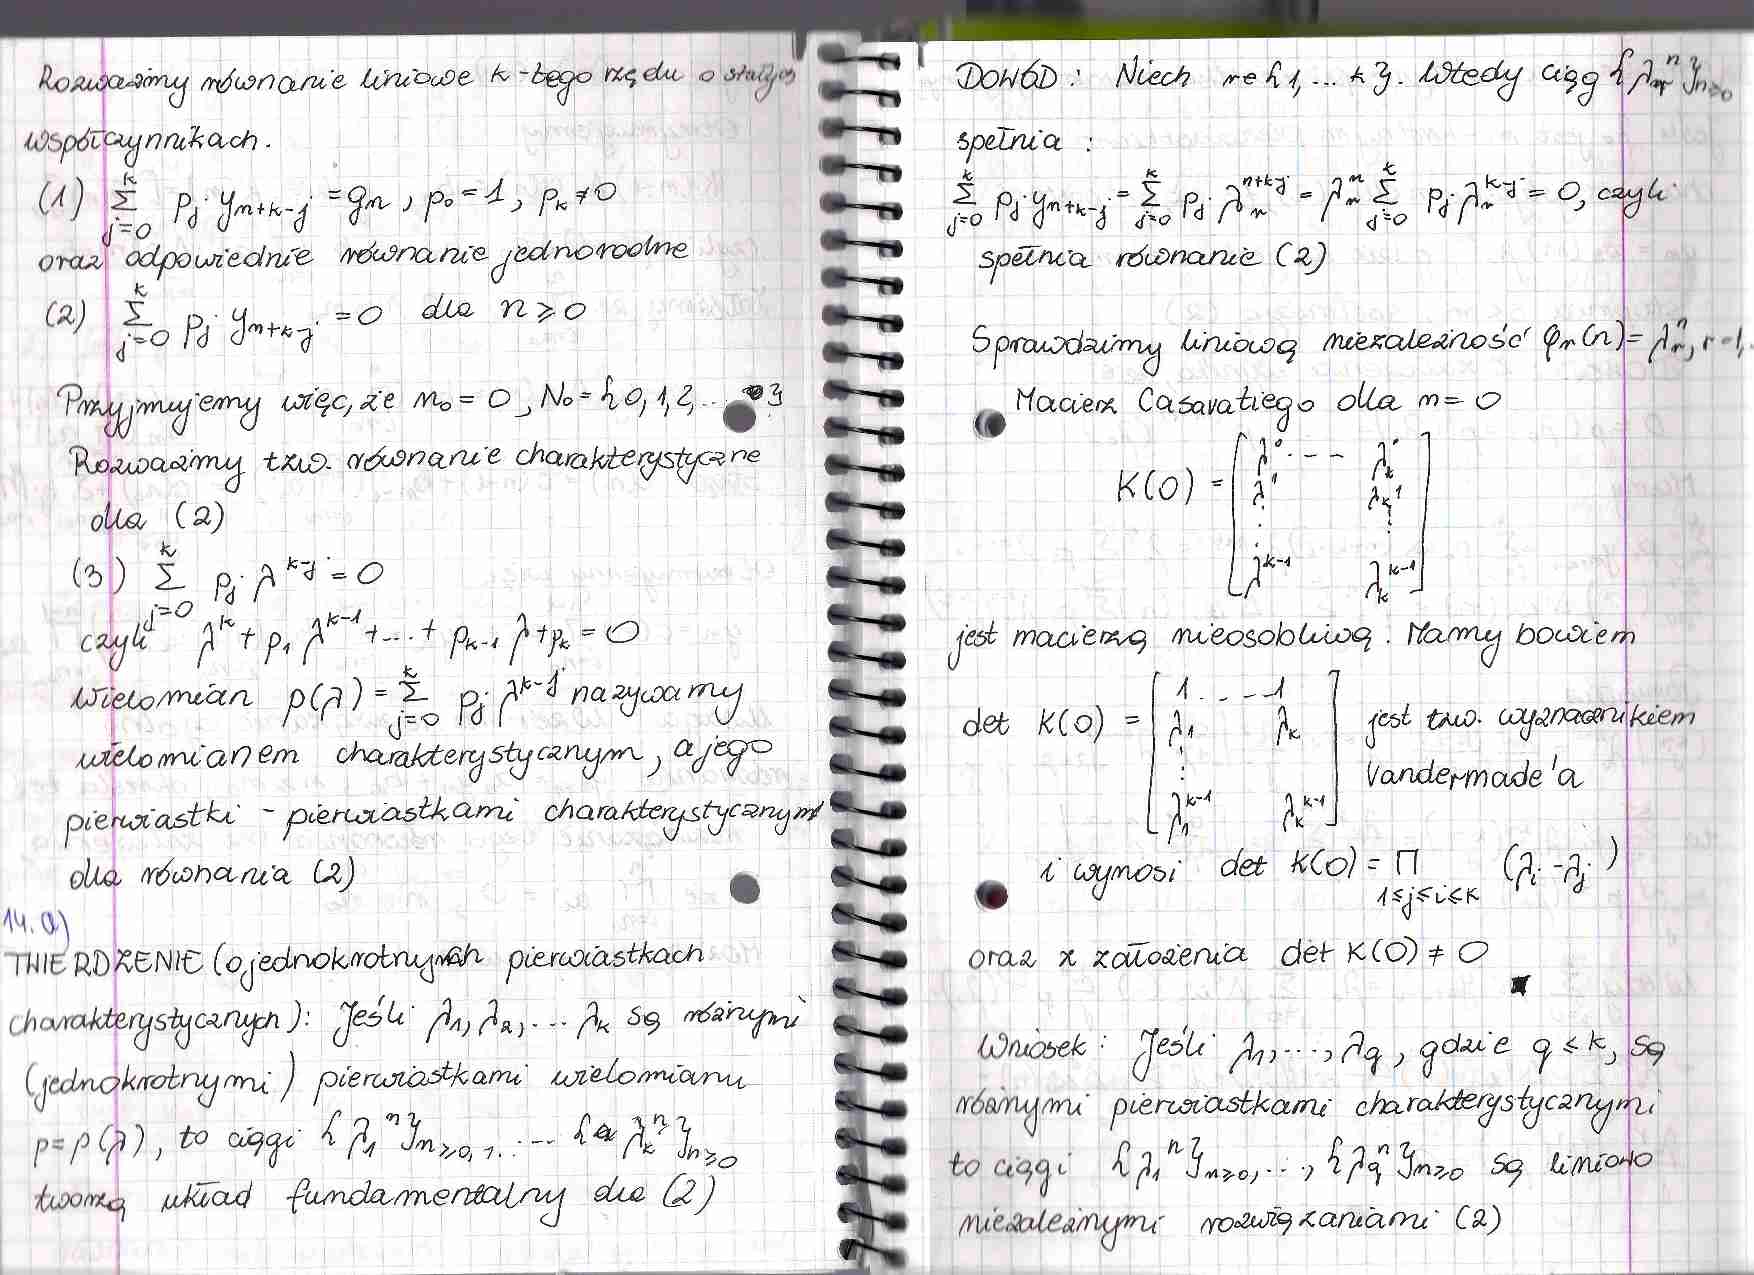 Rozważmy równanie liniowe k-tego rzędu o stałych
współczynnikach.
(1) Σ_{j=0}^{k} p_j y_{n+k-j} = g_n, p_0 = 1, p_k ≠ 0
oraz odpowiednie równanie jednorodne
(2) Σ_{j=0}^{k} p_j y_{n+k-j} = 0 dla n ≥ 0
Przyjmujemy więc, że n_0 = 0, N_0 = {0, 1, 2, ... }
Rozważmy tzw. równanie charakterystyczne
dla (2)
(3) Σ_{j=0}^{k} p_j λ^{k-j} = 0
czyli λ^k + p_1 λ^{k-1} + ... + p_{k-1} λ + p_k = 0
Wielomian p(λ) = Σ_{j=0}^{k} p_j λ^{k-j} nazywamy
wielomianem charakterystycznym, a jego
pierwiastki - pierwiastkami charakterystycznymi
dla równania (2)
14. a)
TWIERDZENIE (o jednokrotnych pierwiastkach
charakterystycznych): Jeśli λ_1, λ_2, ... λ_k są różnymi
(jednokrotnymi) pierwiastkami wielomianu
p = p(λ), to ciągi {λ_1^n}_{n≥0}, ... {λ_k^n}_{n≥0}
tworzą układ fundamentalny dla (2)
DOWÓD: Niech r∈{1, ... k}. Wtedy ciąg {λ_r^n}_{n≥0}
spełnia:
Σ_{j=0}^{k} p_j y_{n+k-j} = Σ_{j=0}^{k} p_j λ_r^{n+k-j} = λ_r^n Σ_{j=0}^{k} p_j λ_r^{k-j} = 0, czyli
spełnia równanie (2)
Sprawdzimy liniową niezależność φ_r(n) = λ_r^n, r=1,..
Macierz Casoratiego dla n = 0
K(0) = [ λ^0 . - - λ_k^0
λ^1 λ_k^1
⋮ ⋮
λ^{k-1} λ_k^{k-1} ]
jest macierzą nieosobliwą. Mamy bowiem
det K(0) = [ 1 . . - - 1
λ_1 λ_k
⋮
λ_1^{k-1} λ_k^{k-1} ] jest tzw. wyznacznikiem
Vandermade'a
i wynosi det K(0) = Π_{1≤j≤i≤k} (λ_i - λ_j)
oraz z założenia det K(0) ≠ 0
Wniosek: Jeśli λ_1, ..., λ_q, gdzie q ≤ k, są
różnymi pierwiastkami charakterystycznymi
to ciągi {λ_1^n}_{n≥0}, ..., {λ_q^n}_{n≥0} są liniowo
niezależnymi rozwiązaniami (2)